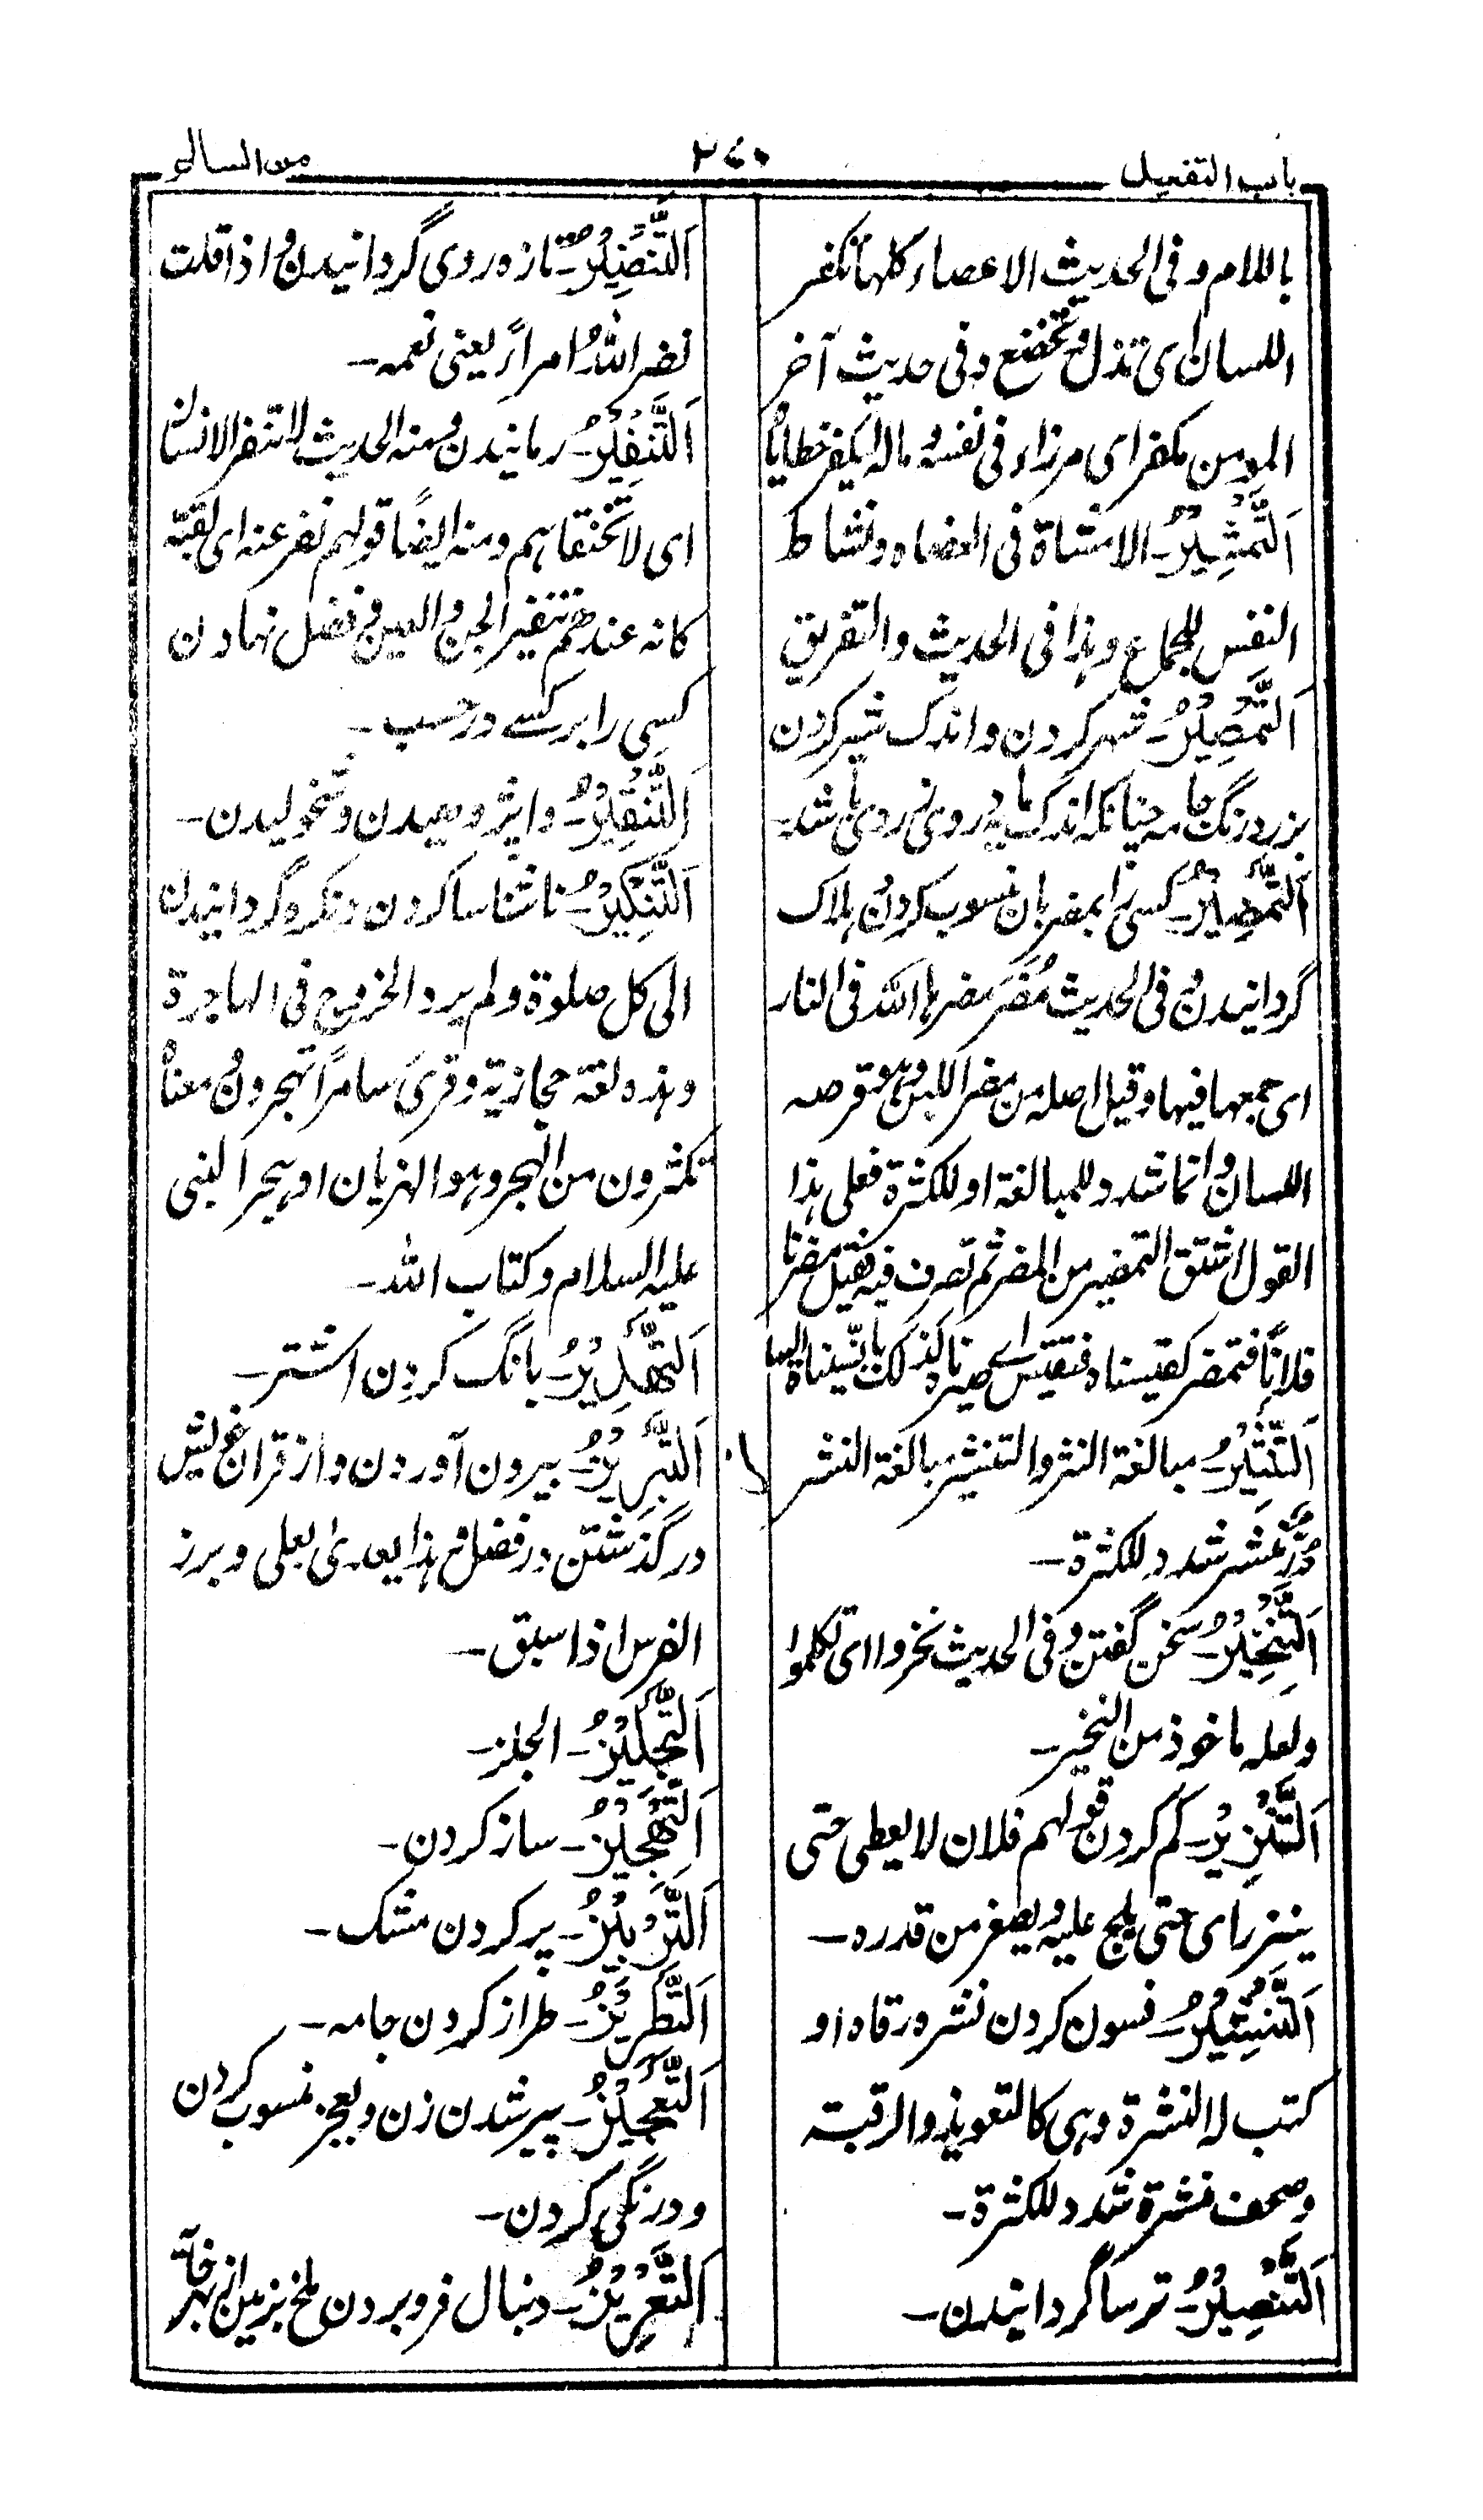 باب التفعيل
٢٤٠
من السالم
باللام وفى الحديث الاعضاء كلها تكفر
اللسان اى تذل وتخضع وفى حديث آخر
المومن مكفر اى مرزاء فى نفسه وماله ليكفر خطاياه
اَلتَّمْشِيْرُ۔ الامشاة فى العضاه ونشاط
النفس للجماع وہذا فى الحديث والتفريق
اَلتَّمْصِيْرُ۔ شہر كردن واندك شير كردن
بز ورنگ جامہ چنانكہ اندك مايہ زردى بر وى باشد۔
اَلتَّمْضِيْرُ۔ كسى را بمضر باز منسوب كردن وہلاك
گردانيدن وفى الحديث مُضَر مضرہا الله فى النار
اى جمعها فيها وقيل اصله من مضر اللبن وہو قرصہ
اللسان وانما شدد للمبالغة او للكثرة فعلى ہذا
القول اشتق التمضير من المضر ثم تصرف فيه فقيل مضرنا
فلانًا فتمضر كقيسناه فتقيس اے صيرناہ كذلك بالنسبة اليها
اَلتَّنْثِيْرُ۔ مبالغة النثر والتنشير مبالغة النشر
شدد للكثرة۔
اَلتَّنْخِيْرُ۔ سخن گفتن وفى الحديث نخروا اى تكلموا
ولعله ماخوذ من النخير۔
اَلتَّنْزِيْرُ۔ كم كردن قولہم فلان لا يعطى حتى
ينزر اى حتى يلح عليه ويصغر من قدره۔
اَلتَّنْشِيْرُ۔ فسون كردن نشره رقاه او
كتب له النشرة وہى كالتعويذ والرقية
وصحف منشرة شدد للكثرة۔
اَلتَّنْصِيْرُ۔ ترسا گردانيدن۔
اَلتَّنْضِيْرُ۔ تازه روى گردانيدن واذا قلت
نضر اللهُ امراً يعنى نعمہ۔
اَلتَّنْفِيْرُ۔ رمانيدن ومنه الحديث لا تنفر الانسان
اى ومنه ايضًا قولہم نفر عنه اى لقبه
كانه عندهم تنفير الجن والعين وفضل نہادن
كسى را بر كسے در حسب۔
اَلتَّنْقِيْرُ۔ واپژوهيدن وشخوليدن۔
اَلتَّنْكِيْرُ۔ ناشناسا كردن ونكره گردانيدن
الى كل صلوة ولم يرد الخروج فى الهاجرة
وہذه لغة حجازية وقرى سامراً تهجرون معناه
تكثرون من الهجر وہو الہزيان او ہجر النبى
عليه السلام وكتاب الله۔
اَلتَّهْدِيْرُ۔ بانگ كردن اشتر۔
اَلتَّبْرِيْزُ۔ بيرون آوردن واز قران خويش
درگذشتن در فضل وہذا يعدى بعلى وبرز
الفرس اذا سبق۔
اَلتَّجْلِيْزُ۔ الجلز۔
اَلتَّجْهِيْزُ۔ ساز كردن۔
اَلتَّرْبِيْزُ۔ پر كردن مشك۔
اَلتَّطْرِيْزُ۔ طراز كردن جامه۔
اَلتَّعْجِيْزُ۔ پير شدن زن وبعجز منسوب كردن
ودرنگى كردن۔
اَلتَّغْرِيْزُ۔ دنبال فرو بردن ملخ بزمين از بهر خايه